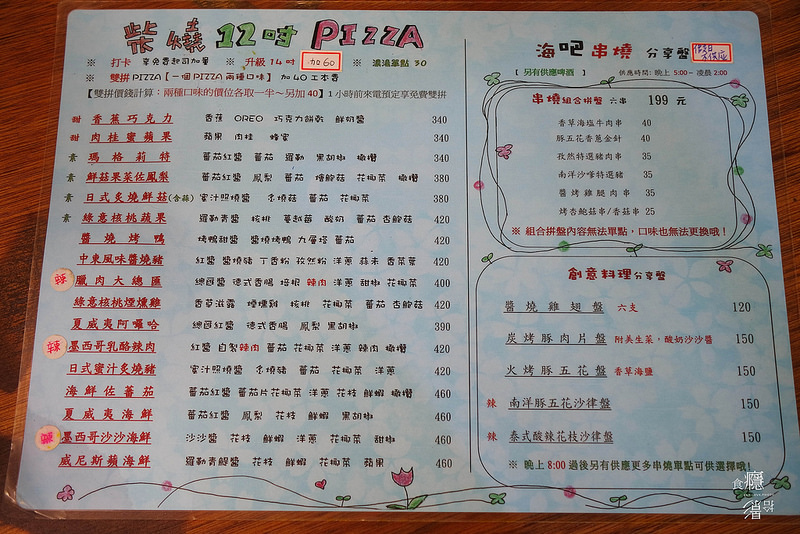 柴燒12吋PIZZA
※ 打卡 享免費起司加量 ※ 升級14吋 加60 ※ 濃湯單點30
※ 雙拼PIZZA【一個PIZZA兩種口味】 加40工本費
【雙拼價錢計算：兩種口味的價位各取一半~另加40】1小時前來電預定享免費雙拼
甜 香蕉巧克力 香蕉 OREO 巧克力餅乾 鮮奶醬 340
甜 肉桂蜜蘋果 蘋果 肉桂 蜂蜜 340
素 瑪格莉特 蕃茄紅醬 蕃茄 羅勒 黑胡椒 橄欖 340
素 鮮菇果菜佐鳳梨 蕃茄紅醬 鳳梨 蕃茄 燴鮑菇 花椰菜 橄欖 380
素 日式炙燒鮮菇(含蒜) 蜜汁照燒醬 名燒菇 蕃茄 花椰菜 380
素 綠意核桃蔬果 羅勒青醬 核桃 蔓越莓 酸奶 蕃茄 杏鮑菇 420
醬燒烤鴨 烤鴨甜醬 醬燒烤鴨 九層塔 蕃茄 420
中東風味醬燒豬 紅醬 醬燒豬 丁香粉 孜然粉 洋蔥 蒜末 香菜葉 420
辣 臘肉大總匯 總匯醬 德式香腸 培根 辣肉 洋蔥 甜椒 花椰菜 400
綠意核桃煙燻雞 香草滋露 煙燻雞 核桃 花椰菜 蕃茄 杏鮑菇 420
夏威夷阿囉哈 總匯紅醬 德式香腸 鳳梨 黑胡椒 390
辣 墨西哥乳酪辣肉 紅醬 自製辣肉 蕃茄 花椰菜 洋蔥 辣肉 橄欖 420
日式蜜汁炙燒豬 蜜汁照燒醬 名燒豬 蕃茄 花椰菜 洋蔥 420
海鮮佐蕃茄 蕃茄紅醬 蕃茄片花椰菜 洋蔥 花枝 鮮蝦 橄欖 460
夏威夷海鮮 蕃茄紅醬 鳳梨 花枝 鮮蝦 黑胡椒 460
辣 墨西哥沙沙海鮮 沙沙醬 花枝 鮮蝦 洋蔥 花椰菜 甜椒 460
威尼斯蘋海鮮 羅勒青醬 花枝 鮮蝦 花椰菜 蘋果 460
海吧串燒 分享盤
〔 另有供應啤酒 〕 供應時間: 晚上 5:00~ 凌晨 2:00
串燒組合拼盤 六串 199 元
香草海塩牛肉串 40
豚五花香蔥金針 40
孜然特選豬肉串 35
南洋沙嗲特選豬 35
醬烤雞腿肉串 35
烤杏鮑菇串/香菇串 25
※ 組合拼盤內容無法單點，口味也無法更換哦！
創意料理分享盤
醬燒雞翅盤 六支 120
炭烤豚肉片盤 附美生菜，酸奶沙沙醬 150
火烤豚五花盤 香草海鹽 150
辣 南洋豚五花沙律盤 150
辣 泰式酸辣花枝沙律盤 150
※ 晚上 8:00 過後另有供應更多串燒單點可供選擇哦!
食癮